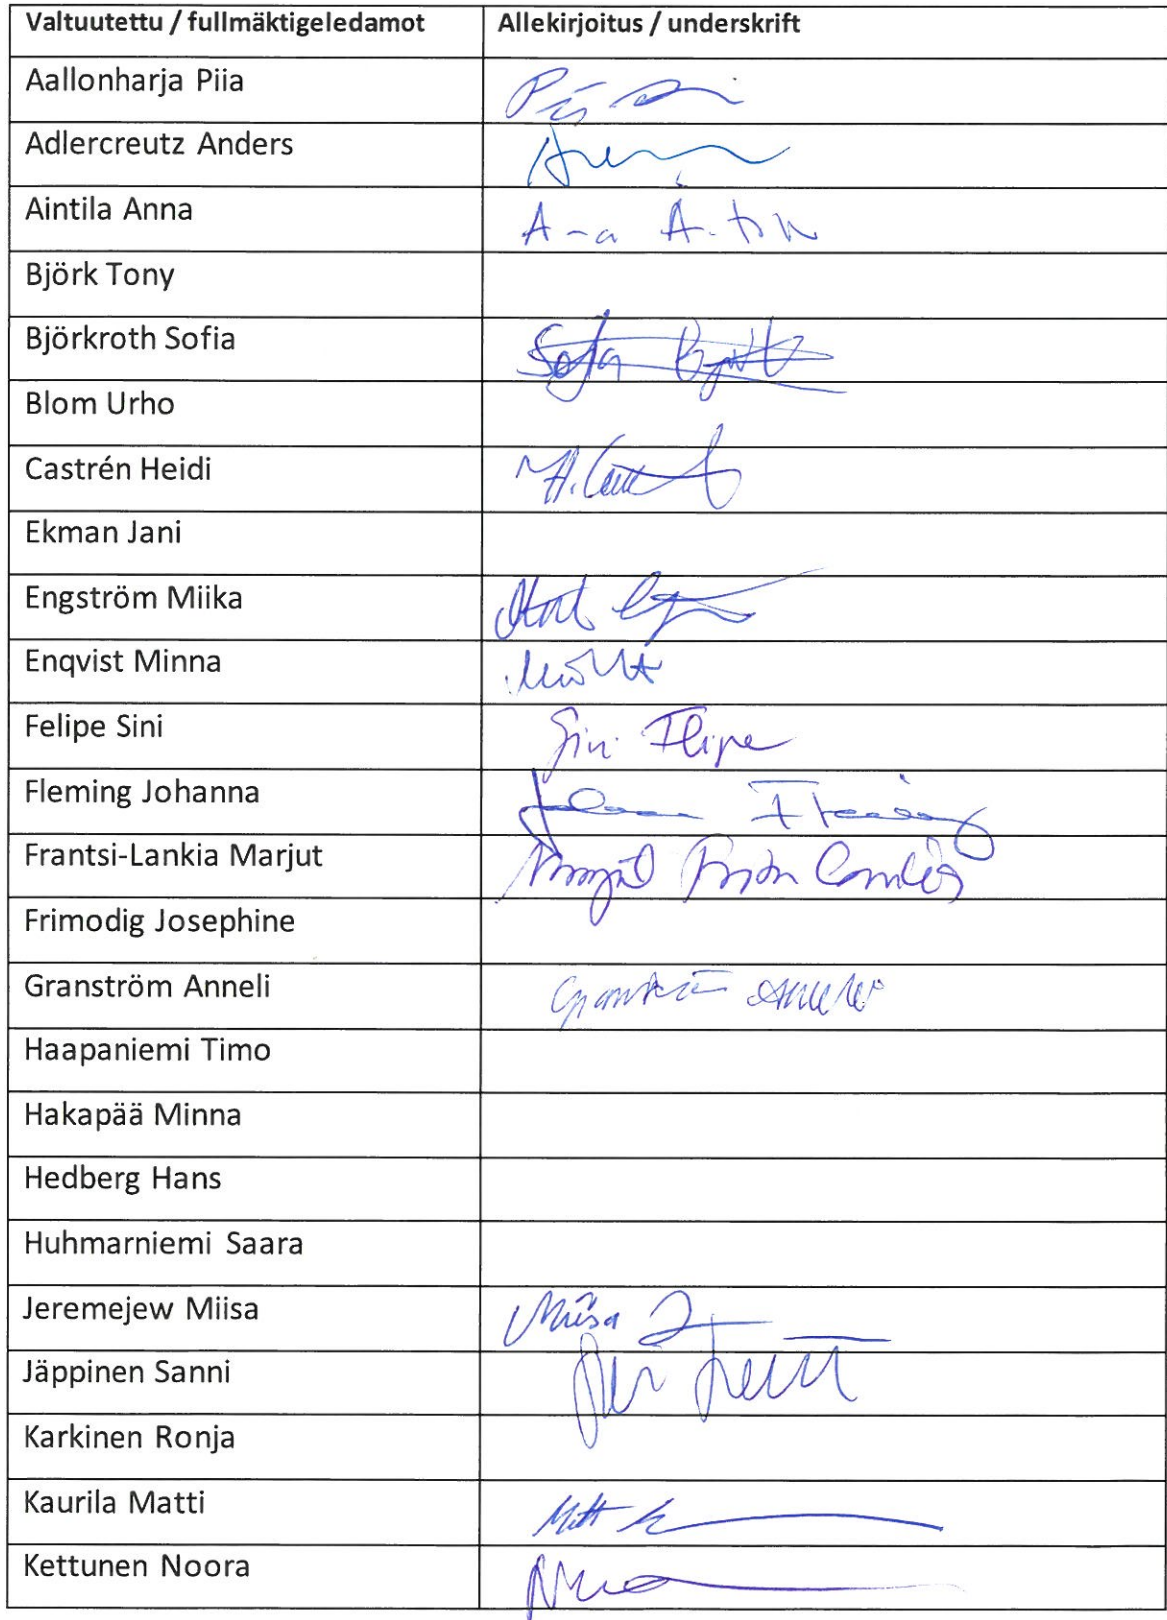 Valtuutettu / fullmäktigeledamot Allekirjoitus / underskrift
Aallonharja Piia
Adlercreutz Anders
Aintila Anna
Björk Tony
Björkroth Sofia Sofia
Blom Urho
Castrén Heidi H.
Ekman Jani
Engström Miika
Enqvist Minna
Felipe Sini Sini Felipe
Fleming Johanna Johanna Fleming
Frantsi-Lankia Marjut
Frimodig Josephine
Granström Anneli Granström Anneli
Haapaniemi Timo
Hakapää Minna
Hedberg Hans
Huhmarniemi Saara
Jeremejew Miisa Miisa J
Jäppinen Sanni
Karkinen Ronja
Kaurila Matti
Kettunen Noora